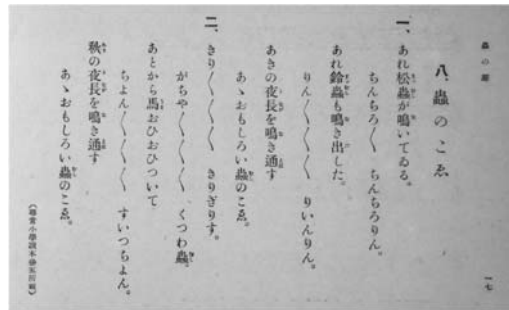 蟲の聲
八、蟲のこゑ
一、あれ松蟲が鳴いてゐる。
ちんちろ〳〵 ちんちろりん。
あれ鈴蟲も鳴き出した。
りん〳〵〳〵〳〵 りいんりん。
あきの夜長を鳴き通す
あゝおもしろい蟲のこゑ。
二、きり〳〵〳〵〳〵 きりぎりす。
がちや〳〵〳〵〳〵 くつわ蟲。
あとから馬おひおひついて
ちよん〳〵〳〵〳〵 すいつちよん。
秋の夜長を鳴き通す
あゝおもしろい蟲のこゑ。
(尋常小學讀本卷五所載)
一七